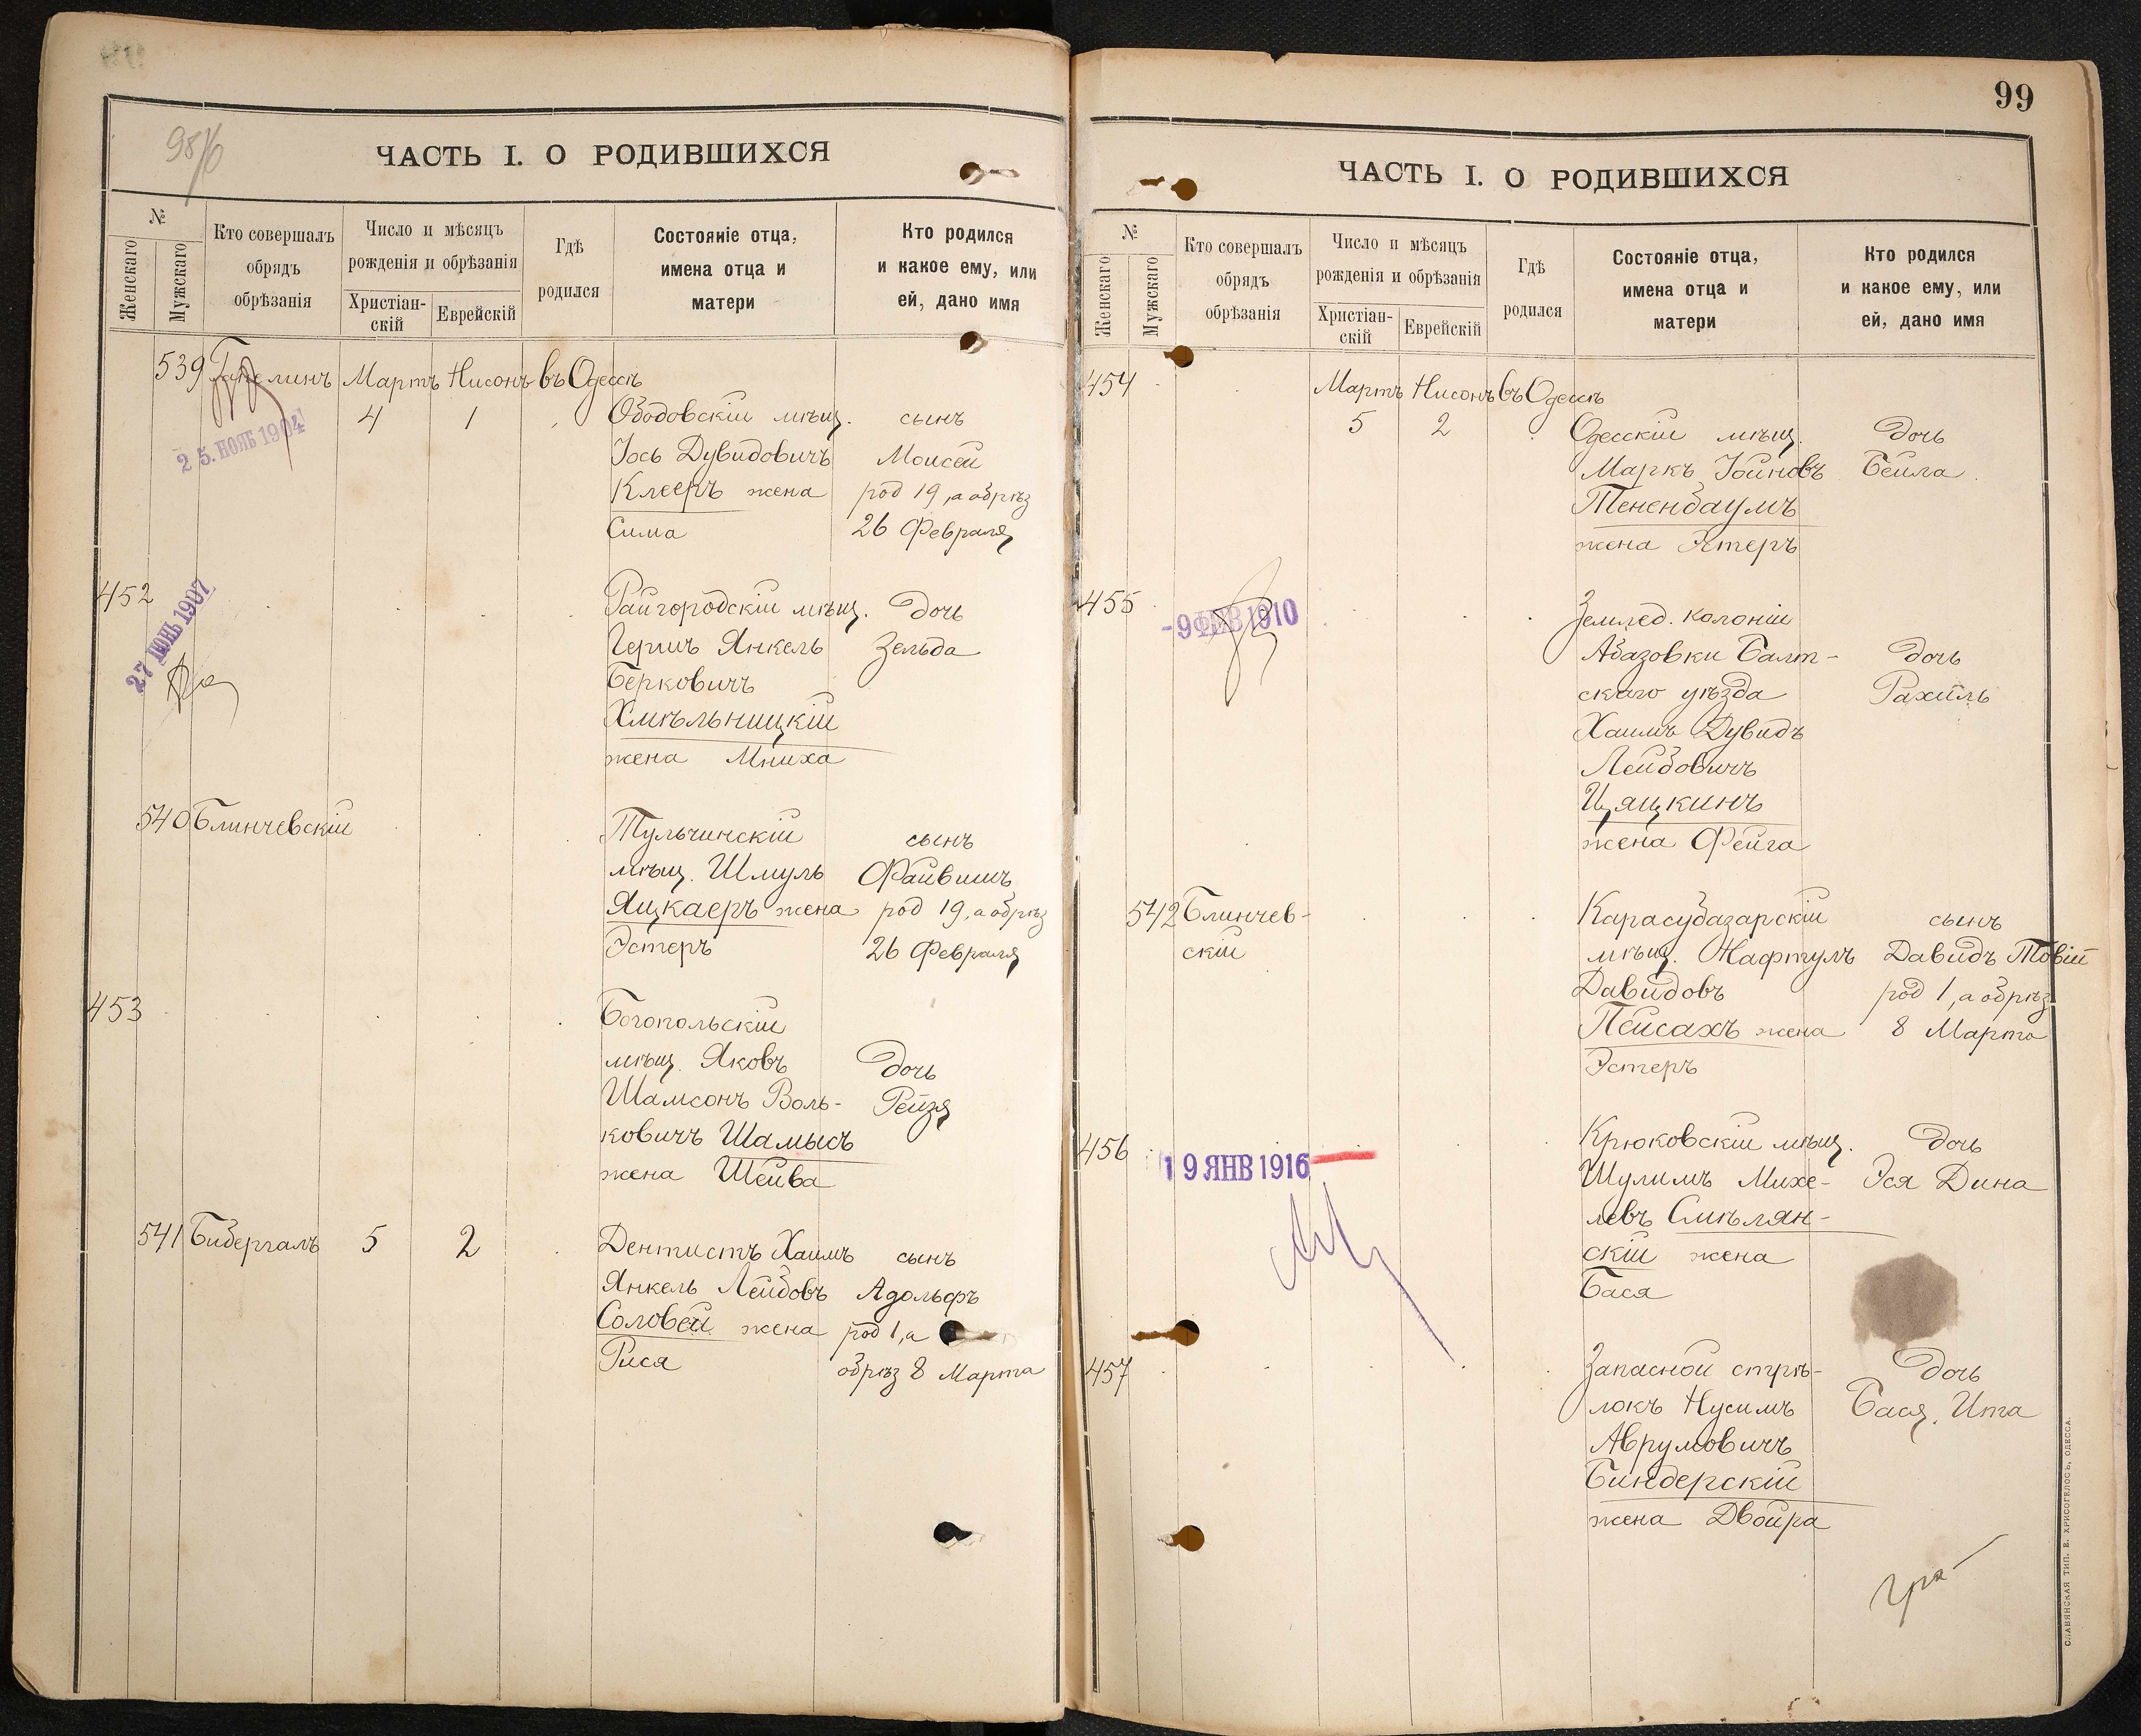 98/б
ЧАСТЬ I. О РОДИВШИХСЯ
№
Женскаго
Мужскаго
Кто совершалъ
обрядъ
обрѣзанія
Число и мѣсяцъ
рожденія и обрѣзанія
Христіан-
скій
Еврейскій
Гдѣ
родился
Состояніе отца,
имена отца и
матери
Кто родился
и какое ему, или
ей, дано имя
539 Мартъ Нисонъ въ Одессѣ
4 1 Ободовскій мѣщ. сынъ
25. НОЯБ 1904
Іось Дувидовичъ Моисей
Клееръ жена род 19, а обрѣз
Сима 26 Февраля
452 Райгородскій мѣщ. дочь
27 ІЮНЬ 1907
Гершъ Янкель Зельда
Берковичъ
Хмѣльницкій
жена Мниха
540 Блинчевскій Тульчинскій сынъ
мѣщ. Шмуль Файвишъ
Яцкаеръ жена род 19, а обрѣз
Эстеръ 26 Февраля
453 Богопольскій
мѣщ. Яковъ дочь
Шамсонъ Воль- Рейзя
ковичъ Шамысъ
жена Шейва
541 Бибергалъ 5 2 Дентистъ Хаимъ сынъ
Янкель Лейбовъ Адольфъ
Соловей жена род 1, а
Рися обрѣз 8 Марта
99
ЧАСТЬ I. О РОДИВШИХСЯ
№
Женскаго
Мужскаго
Кто совершалъ
обрядъ
обрѣзанія
Число и мѣсяцъ
рожденія и обрѣзанія
Христіан-
скій
Еврейскій
Гдѣ
родился
Состояніе отца,
имена отца и
матери
Кто родился
и какое ему, или
ей, дано имя
454 Мартъ Нисонъ въ Одессѣ
5 2 Одесскій мѣщ. дочь
Маркъ Іойновъ Бейла
Тененбаумъ
жена Эстеръ
455 Землед. колоніи
-9 ФЕВ 1910
Абазовки Балт- дочь
скаго уѣзда Рахиль
Хаимъ Дувидъ
Лейбовичъ
Цяцкинъ
жена Фейга
542 Блинчев- Карасубазарскій сынъ
скій мѣщ. Нафтулъ Давидъ Товій
Давидовъ род 1, а обрѣз
Пейсахъ жена 8 Марта
Эстеръ
456 Крюковскій мѣщ. дочь
19 ЯНВ 1916
Шулимъ Михе- Эся Дина
левъ Смѣлян-
скій жена
Бася
457 Запасной стрѣ- дочь
локъ Нусимъ Бася, Ита
Аврумовичъ
Биндерскій
жена Двойра
СЛАВЯНСКАЯ ТИП. Е. ХРИСОГЕЛОСЪ, ОДЕССА.